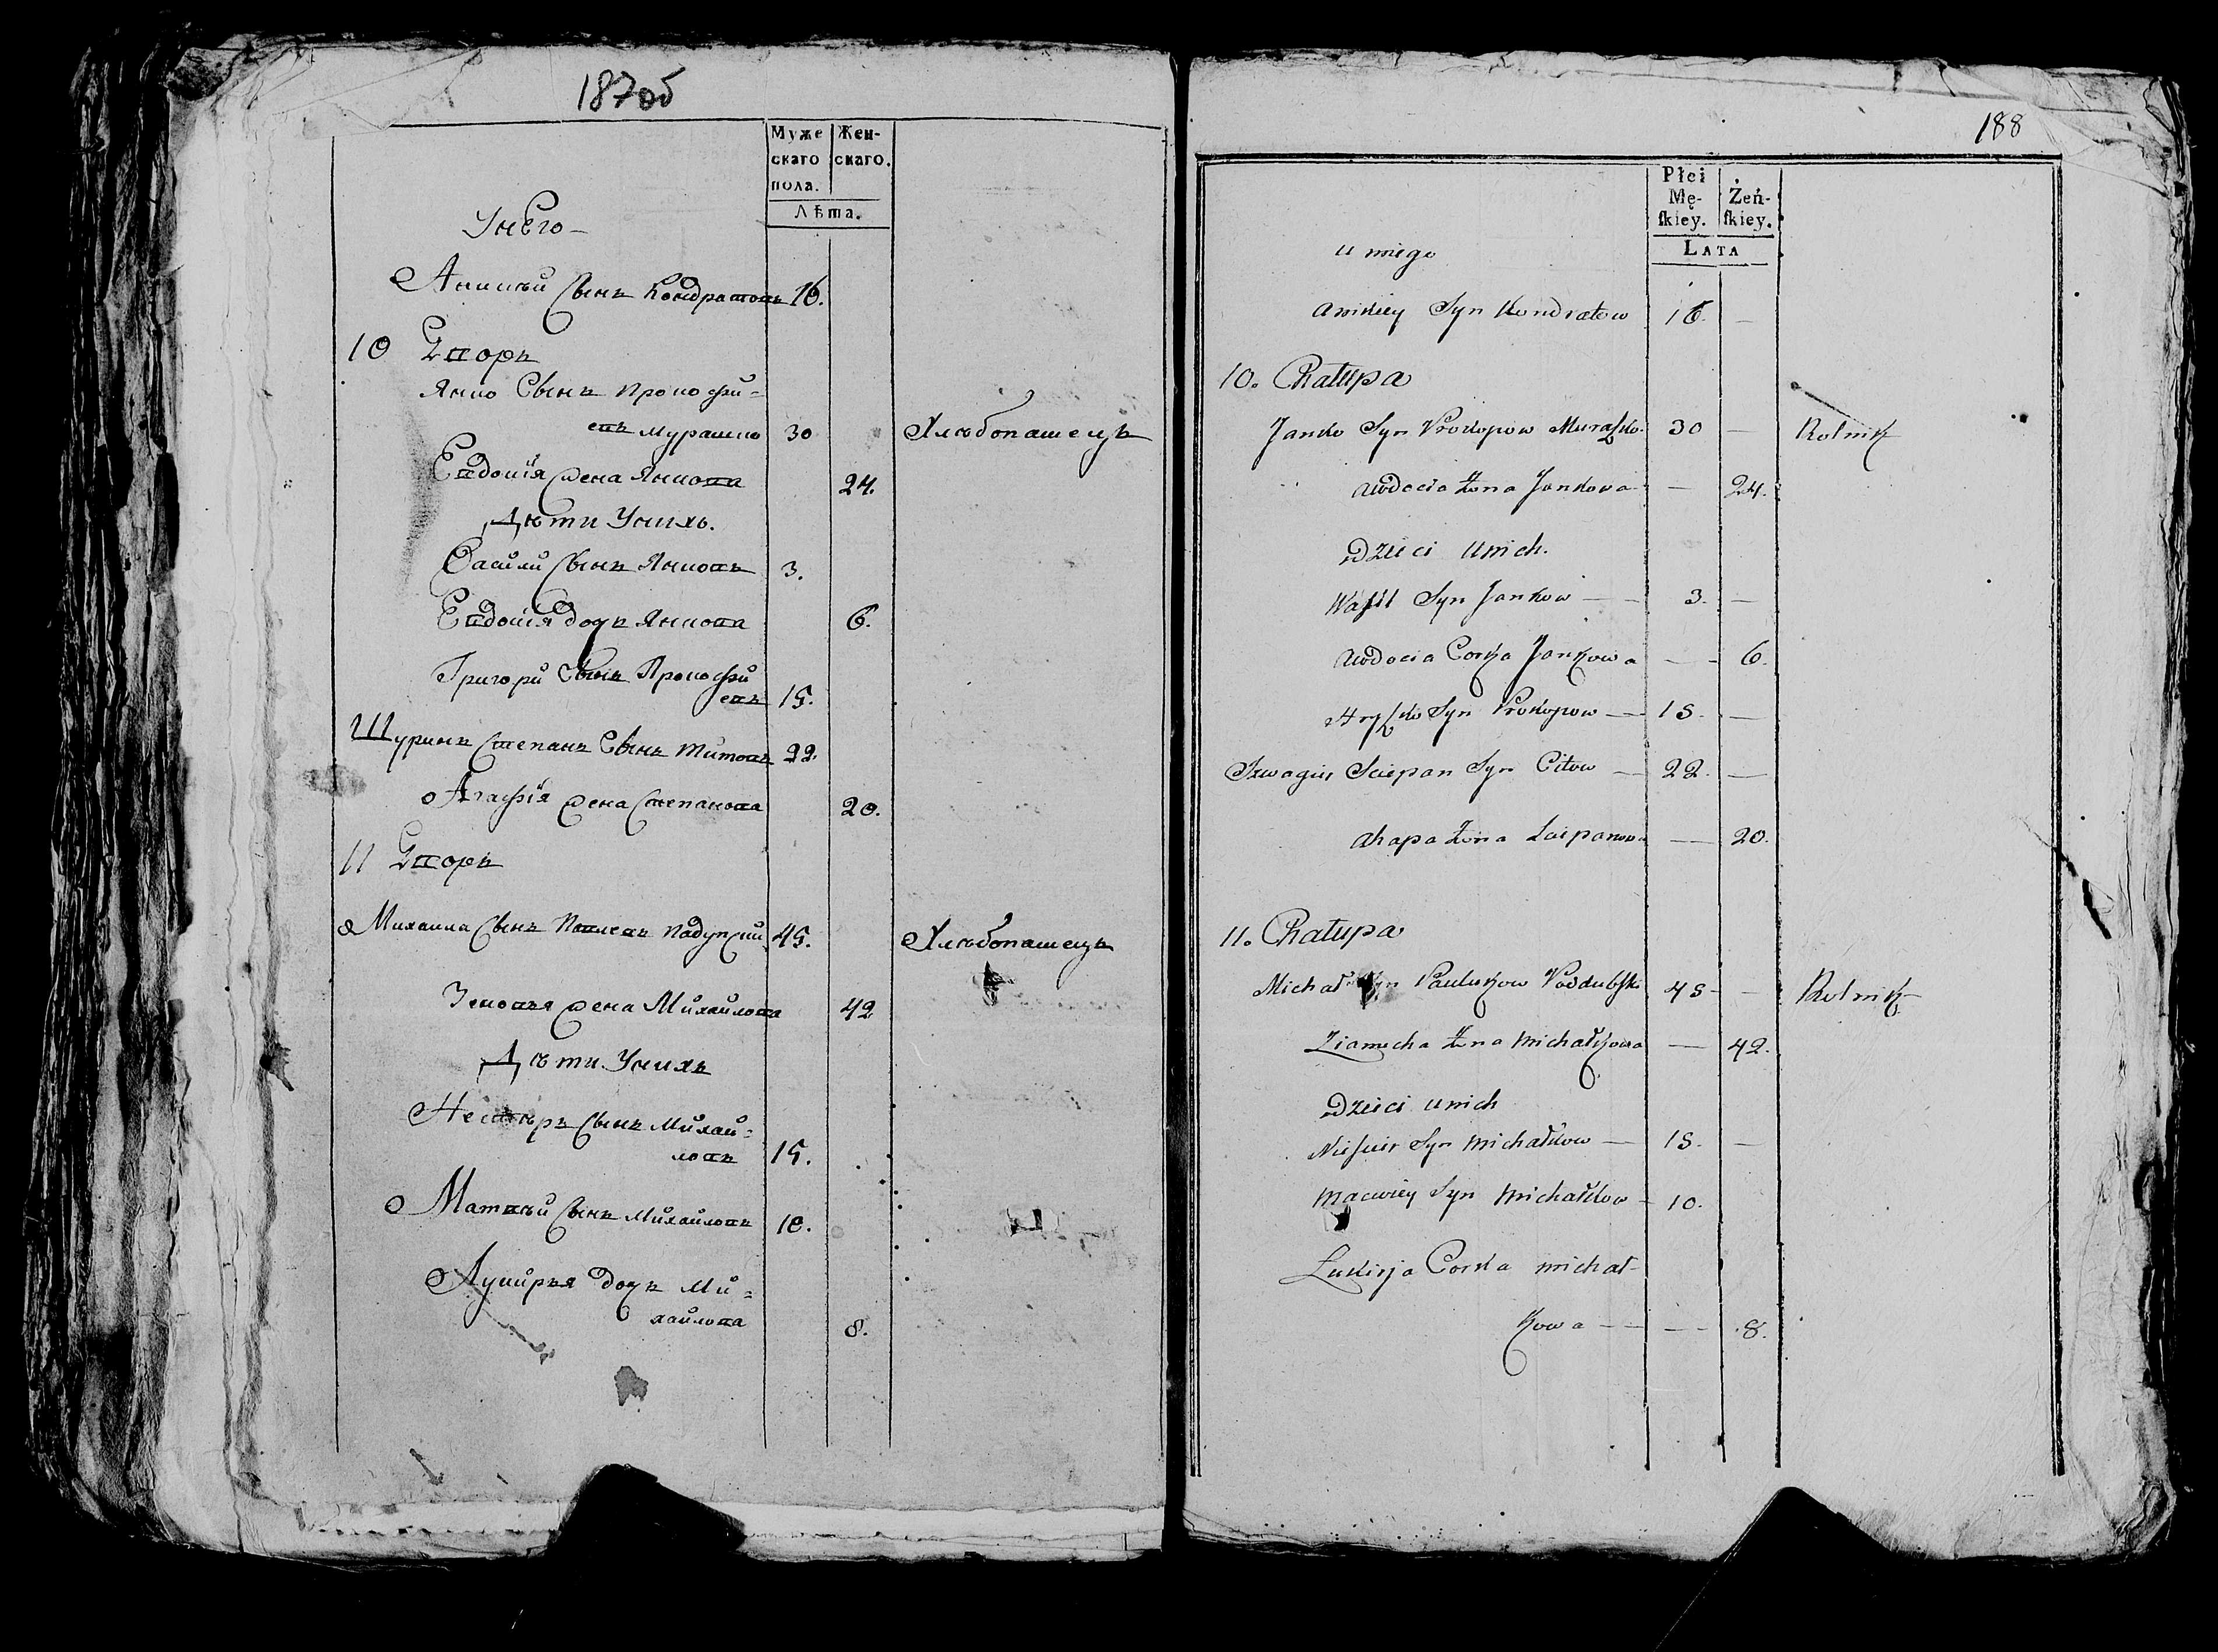 187об
Муже
скаго
пола.
Жен-
скаго.
Лѣта.
У него
Аникѣй Сынъ Кондратовъ 16.
10 Дворъ
Янко Сынъ Прокофи=
евъ Мурашко 30 Хлѣбопашецъ
Евдокія жена Янкова 24.
Дѣти У нихъ.
Васили Сынъ Янковъ 3.
Евдокія дочь Янкова 6.
Григори Сынъ Прокофи
евъ 15.
Шуринъ Степанъ Сынъ Титовъ 22.
Агафія жена Степанова 20.
11 Дворъ
Михаила Сынъ 45. Хлѣбопашецъ
жена Михайлова 42
Дѣти У нихъ
Нестѣръ Сынъ Михай=
ловъ 15.
Матвѣй Сынъ Михайловъ 10.
Лукирья дочь Ми=
хайлова 8.
188
Płci
Mę-
ſkiey.
Żeń-
ſkiey.
LATA
u niego
Anikiey Syn Kondratow 16. —
10. Chałupa
Janko Syn Prokopow Muraszko 30 — Rolnik
Awdocia Żona Jankowa — 24.
Dzieci u nich.
Waſil Syn Jankow — 3. —
Awdocia Corka Jankowa — 6.
Hryſzko Syn Prokopow — 15. —
Szwagier Sciepan Syn Citow — 22. —
Ahapa Żona — 20.
11. Chałupa
Michał Syn Paulukow Poddubſki 45 — Rolnik
Żona Michałkowa — 42.
Dzieci u nich
Nieſcier Syn Michałkow — 15. —
Macwiey Syn Michałkow — 10.
Lukirja Corka Michał-
kowa — — 8.